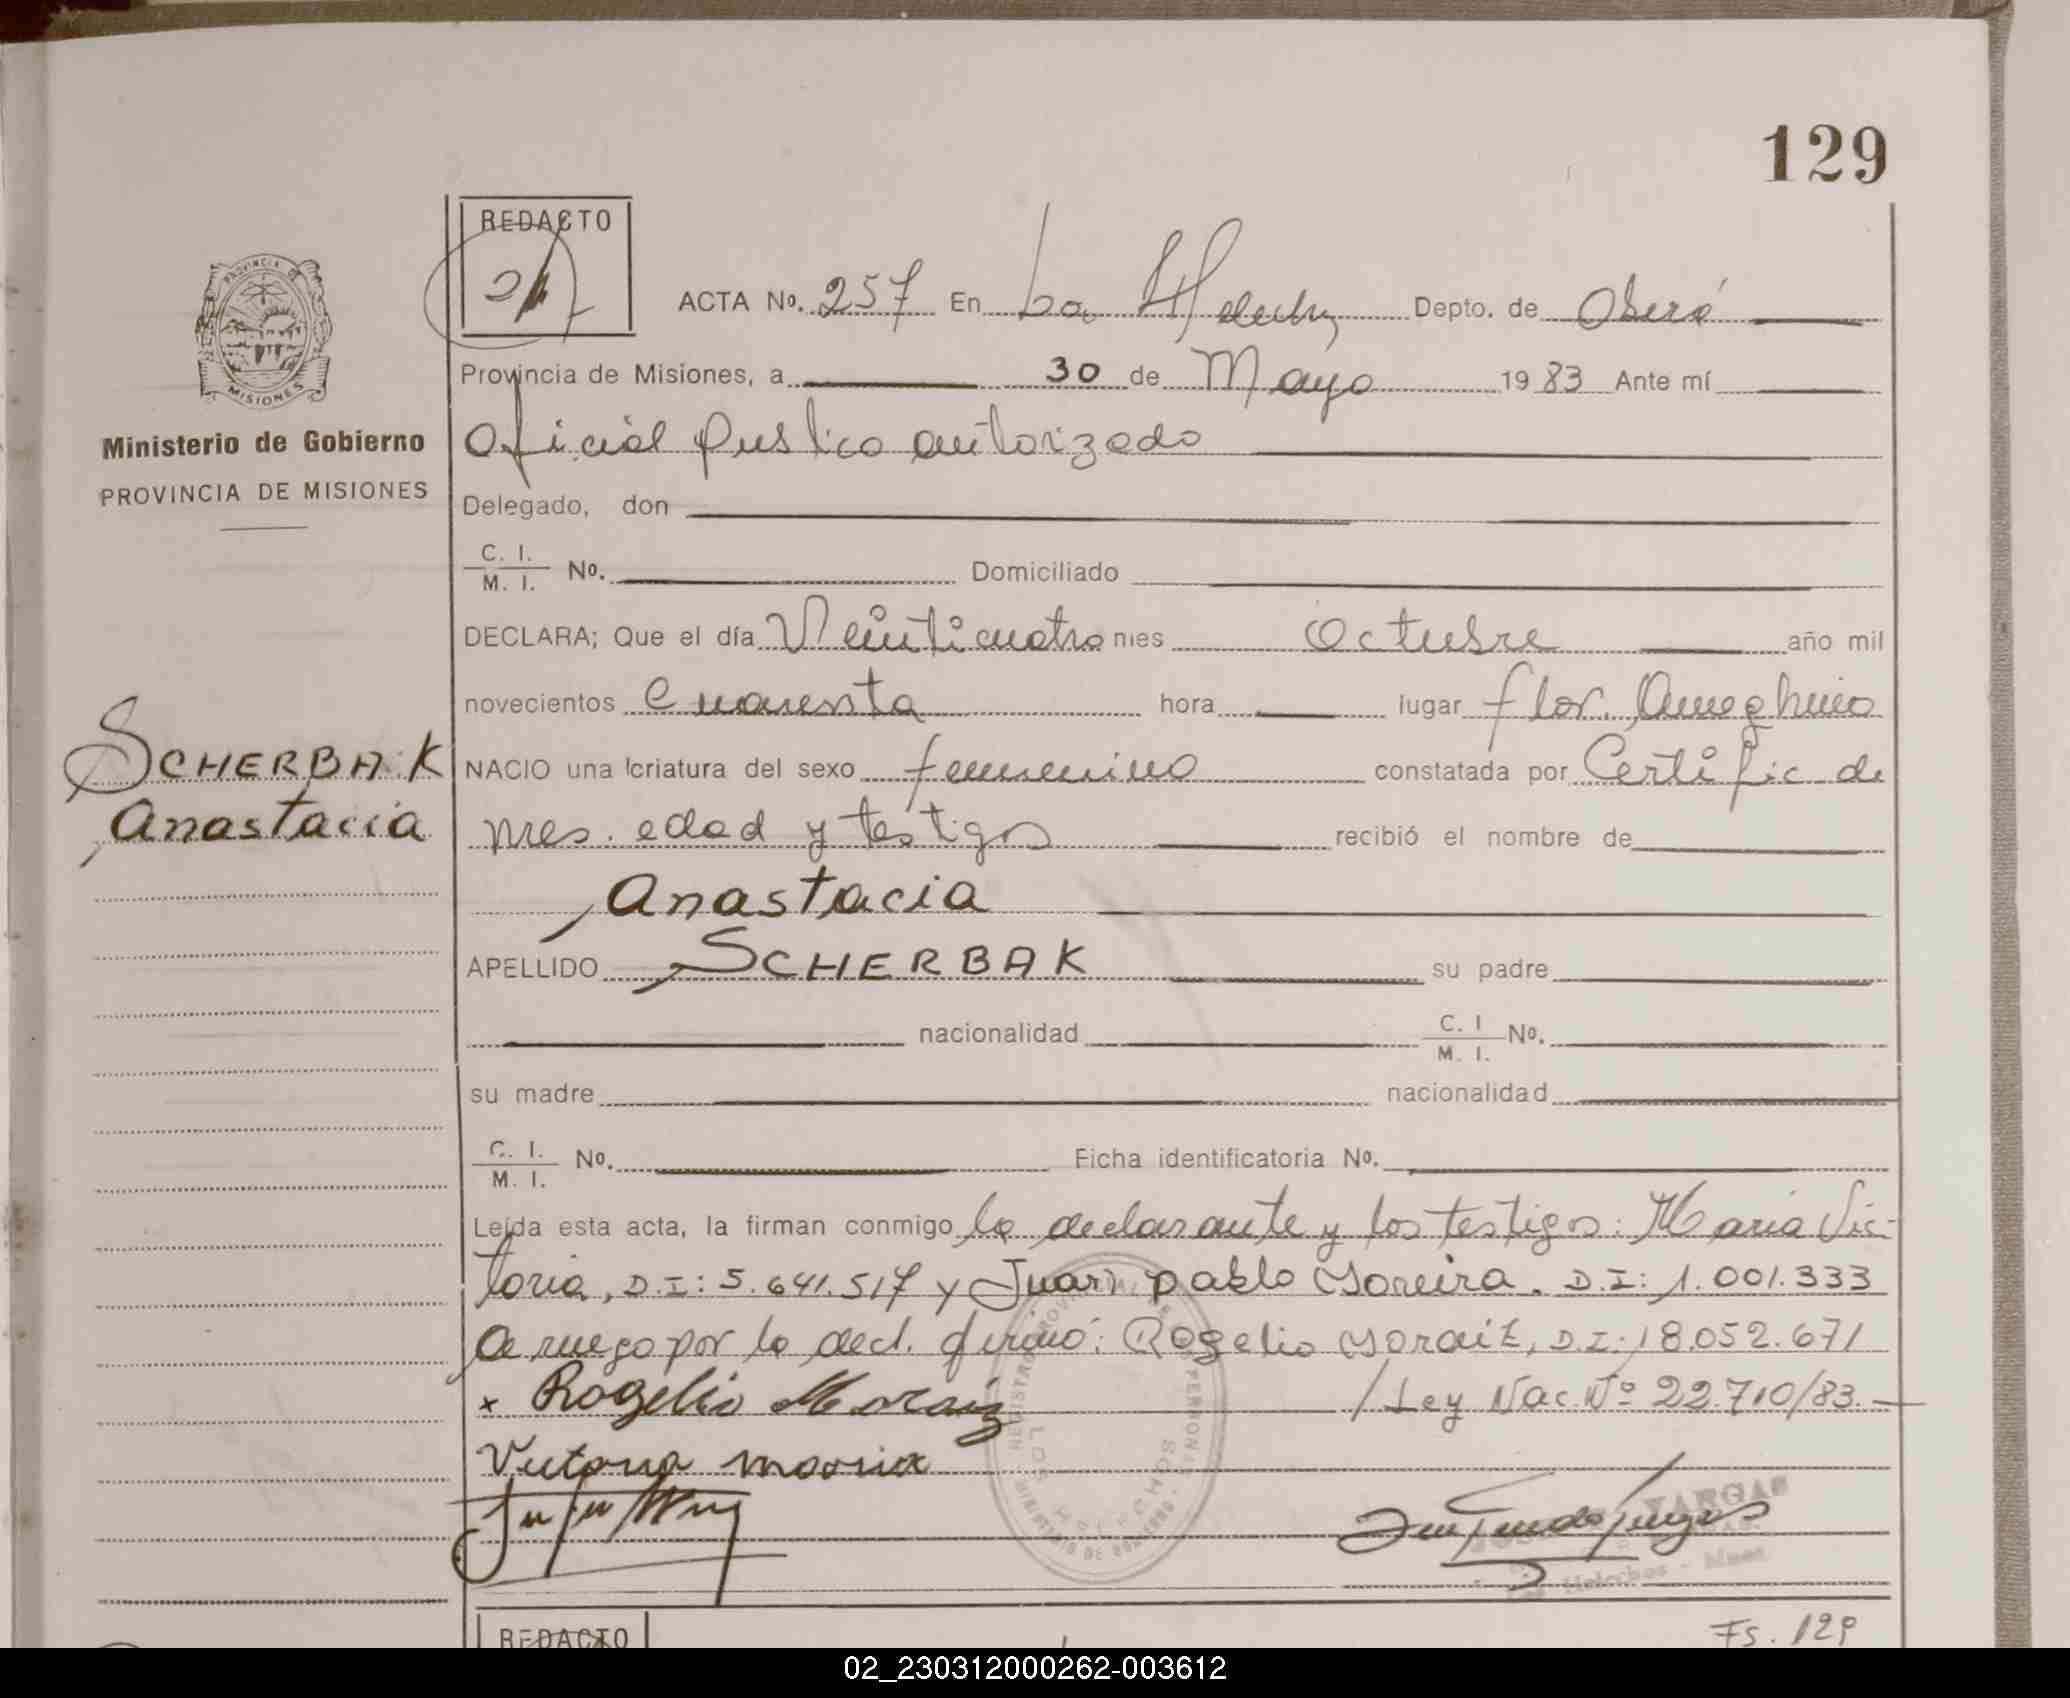 129
REDACTO
ACTA No. 257 En Los Helechos Depto. de Oberá
PROVINCIA DE
MISIONES
Provincia de Misiones, a 30 de Mayo 1983 Ante mí
Ministerio de Gobierno
PROVINCIA DE MISIONES
Oficial Publico autorizado
Delegado, don
C. I.
M. I. No. Domiciliado
DECLARA; Que el día Veinticuatro mes Octubre año mil
novecientos Cuarenta hora lugar flor. Ameghino
SCHERBAK
Anastacia
NACIO una criatura del sexo femenino constatada por Certific de
pres. edad y testigos recibió el nombre de
Anastacia
APELLIDO SCHERBAK su padre
nacionalidad C. I
M. I. No.
su madre nacionalidad
C. I.
M. I. No. Ficha identificatoria No.
Leída esta acta, la firman conmigo la declarante y los testigos: Maria Vic-
toria, D.I: 5.641.517 y Juan pablo D.I: 1.001.333
A ruego por la decl. firmó: Rogelio D.I: 18.052.671
x Rogelio / Ley Nac. Nº 22.710/83.
Victoria
VARGAS
Helechos - Mnes
REGISTRO PROVINCIAL DE LAS PERSONAS
LOS HELECHOS
MINISTERIO DE GOBIERNO
REDACTO
Fs. 129
02_230312000262-003612